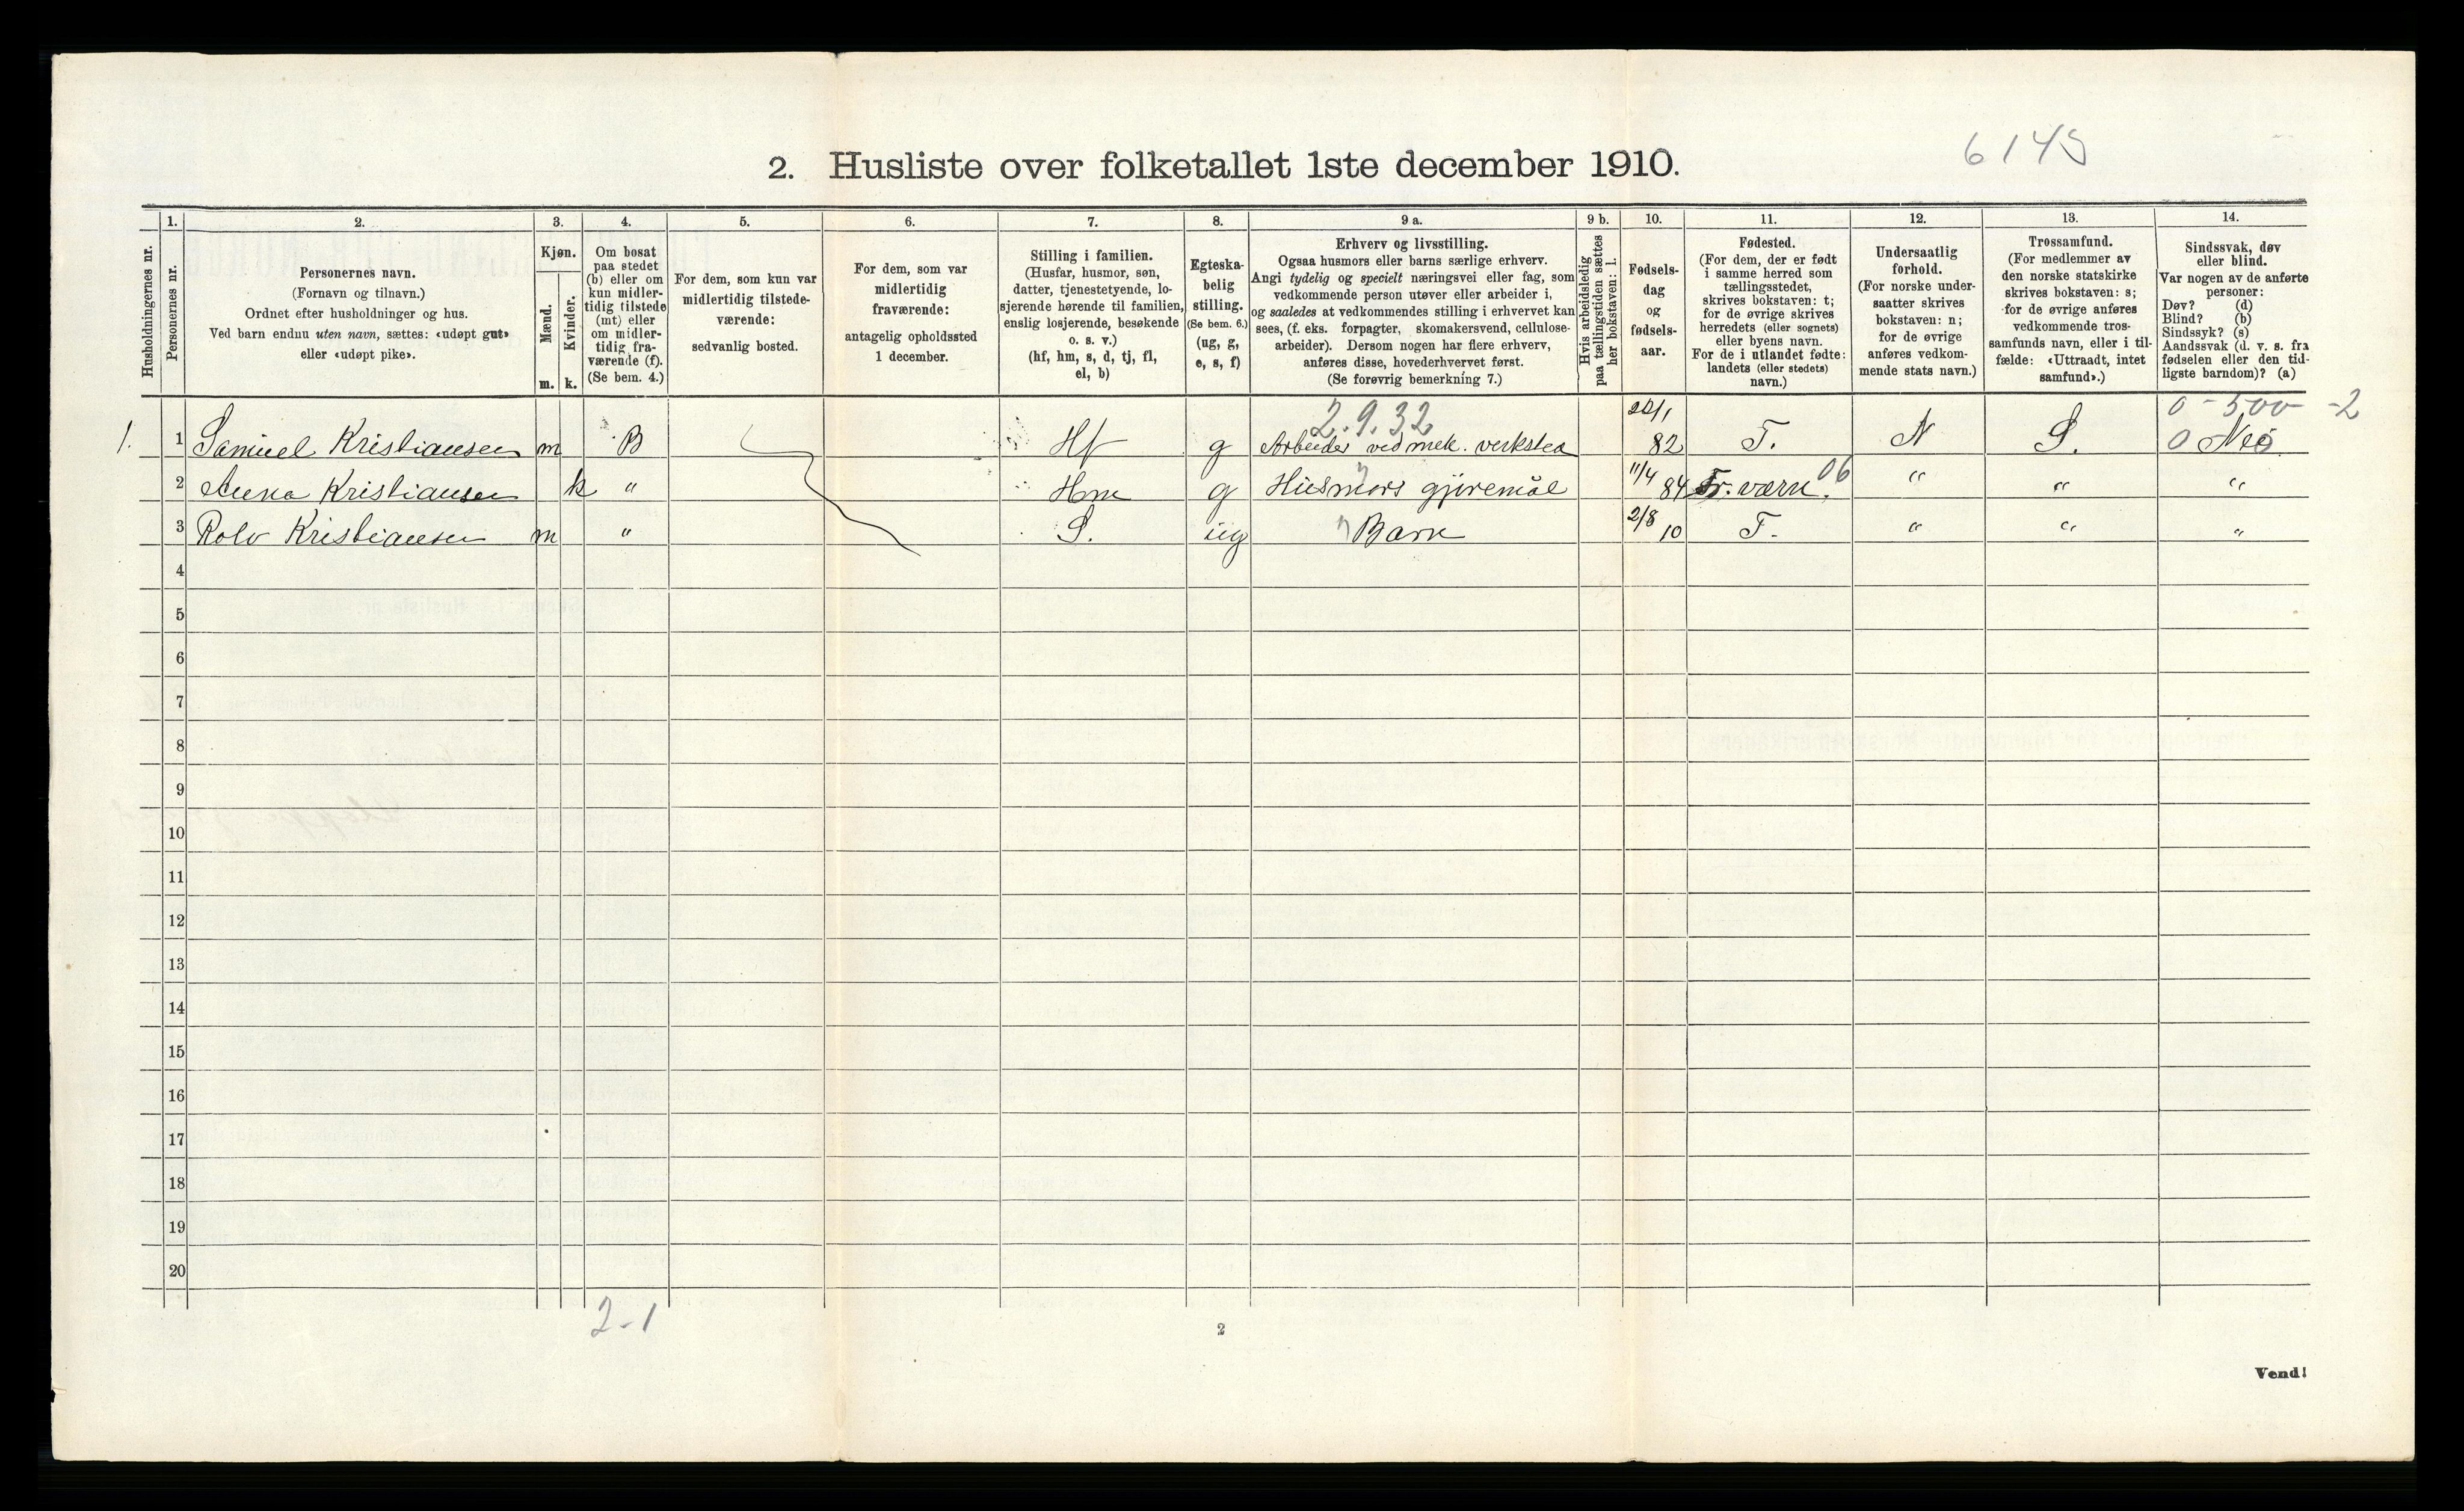 6145
2. Husliste over folketallet 1ste december 1910.
Husholdningernes nr.
1.
Personernes nr.
2.
Personernes navn.
(Fornavn og tilnavn.)
Ordnet efter husholdninger og hus.
Ved barn endnu uten navn, sættes: «udøpt gut»
eller «udøpt pike».
3.
Kjøn.
Mænd.
Kvinder.
m. k.
4.
Om bosat
paa stedet
(b) eller om
kun midler-
tidig tilstede
(mt) eller
om midler-
tidig fra-
værende (f).
(Se bem. 4.)
5.
For dem, som kun var
midlertidig tilstede-
værende:
sedvanlig bosted.
6.
For dem, som var
midlertidig
fraværende:
antagelig opholdssted
1 december.
7.
Stilling i familien.
(Husfar, husmor, søn,
datter, tjenestetyende, lo-
sjerende hørende til familien,
enslig losjerende, besøkende
o. s. v.)
(hf, hm, s, d, tj, fl,
el, b)
8.
Egteska-
belig
stilling.
(Se bem. 6.)
(ug, g,
e, s, f)
9 a.
Erhverv og livsstilling.
Ogsaa husmors eller barns særlige erhverv.
Angi tydelig og specielt næringsvei eller fag, som
vedkommende person utøver eller arbeider i,
og saaledes at vedkommendes stilling i erhvervet kan
sees, (f. eks. forpagter, skomakersvend, cellulose-
arbeider). Dersom nogen har flere erhverv,
anføres disse, hovederhvervet først.
(Se forøvrig bemerkning 7.)
9 b.
Hvis arbeidsledig
paa tællingstiden sættes
her bokstaven: l.
10.
Fødsels-
dag
og
fødsels-
aar.
11.
Fødested.
(For dem, der er født
i samme herred som
tællingsstedet,
skrives bokstaven: t;
for de øvrige skrives
herredets (eller sognets)
eller byens navn.
For de i utlandet fødte:
landets (eller stedets)
navn.)
12.
Undersaatlig
forhold.
(For norske under-
saatter skrives
bokstaven: n;
for de øvrige
anføres vedkom-
mende stats navn.)
13.
Trossamfund.
(For medlemmer av
den norske statskirke
skrives bokstaven: s;
for de øvrige anføres
vedkommende tros-
samfunds navn, eller i til-
fælde: «Uttraadt, intet
samfund».)
14.
Sindssvak, døv
eller blind.
Var nogen av de anførte
personer:
Døv? (d)
Blind? (b)
Sindssyk? (s)
Aandssvak (d. v. s. fra
fødselen eller den tid-
ligste barndom)? (a)
2.9.32 0-500-2
1. 1 Samuel Kristiansen m B Hf g Arbeider ved mek. verksted 82 T. N S. 0 Nei
2 Anna Kristiansen k " Hm g Husmors gjøremål 11/4 84 Fr. værn. 06 " " "
3 Rolv Kristiansen m " S. ug Barn 2/8 10 T. " " "
4
5
6
7
8
9
10
11
12
13
14
15
16
17
18
19
20
2-1
2
Vend!